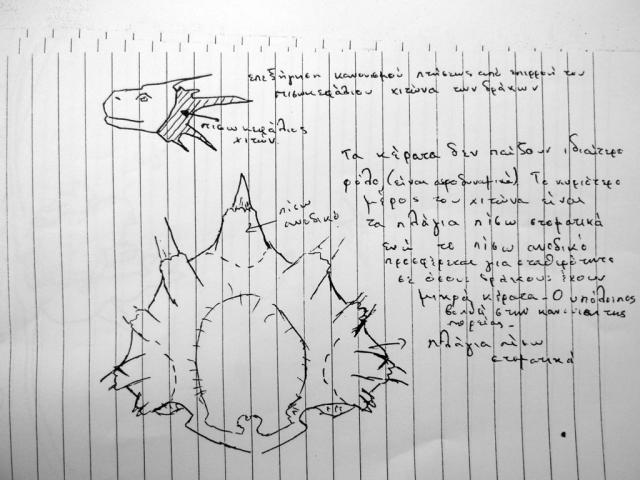 επεξήγηση κανονισμού πτήσεως από επιρροή του
πισωκεφάλιου χιτώνα των δράκων
πισωκεφάλιος
χιτών
Τα κέρατα δεν παίζουν ιδιαίτερο
ρόλο, (είναι αεροδυναμικά) Το κυριότερο
μέρος του χιτώνα είναι
τα πλάγια πίσω στοματικά
ενώ το πίσω ανοδικό
προσφέρεται για σταθερότητα
σε όσους δράκους έχουν
μικρά κέρατα. Ο υπόλοιπος
βοηθά στην
πορείας.
πίσω
ανοδικό
πλάγια πίσω
στοματικά